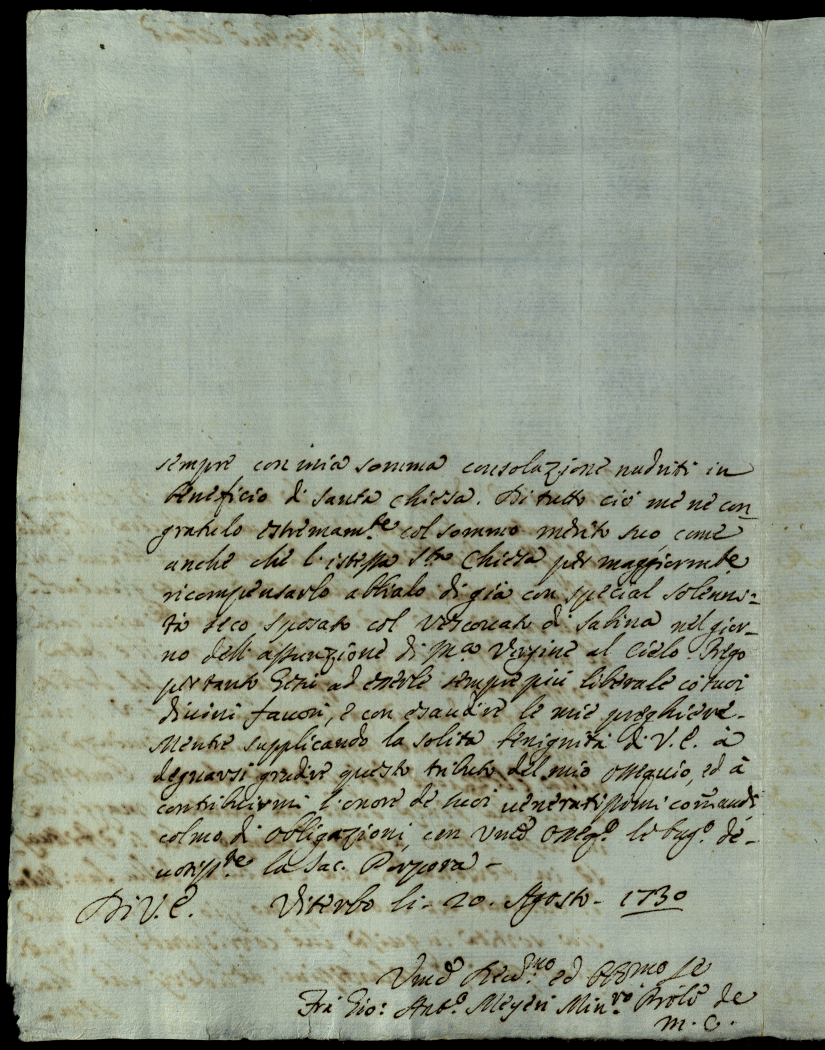 sempre con mia somma consolazione nudriti in
beneficio di Santa Chiesa. Di tutto ciò me ne con
gratulo estremam.te col sommo merito suo come
anche che l'istessa S.ta Chiesa per maggiorm.te
ricompensarlo abbialo di già con special solenni=
tà seco sposato col Vescovato di Sabina nel gior-
no dell'assunzione di M.a Vergine al Cielo. Prego
per tanto ad esserle sempre più liberale co' suoi
divini favori, e con esaudire le mie preghiere.
Mentre supplicando la solita benignità di V.E. à
degnarsi gradire questo tributo del mio ossequio, ed à
contribuirmi l'onore de suoi veneratissimi comandi
colmo di obbligazioni, con um.e osseq.o le bag.o de-
votiss.te la Sac. Porpora -
Di V.E. Viterbo li- 20. Agosto- 1730
Um.o Dev.mo ed Obb.mo Se
Frà Gio: Ant.o Min.ro de
M.C.